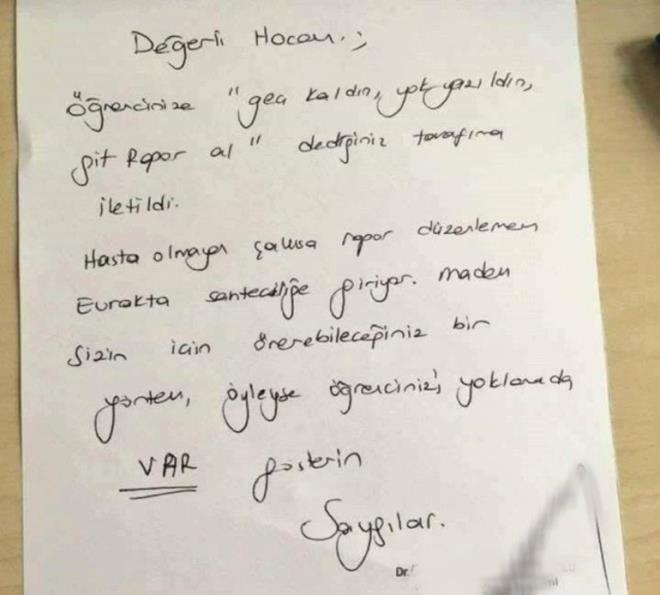 Değerli Hocam.;
Öğrencinize "geç kaldın, yok yazıldın,
git Rapor al" dediğiniz tarafıma
iletildi.
Hasta olmayan şahısa rapor düzenlemem
Evrakta sahteciliğe giriyor. madem
sizin için önerebileceğiniz bir
yöntem, öyleyse öğrencinizi yoklamada
VAR gösterin
Saygılar.
Dr.